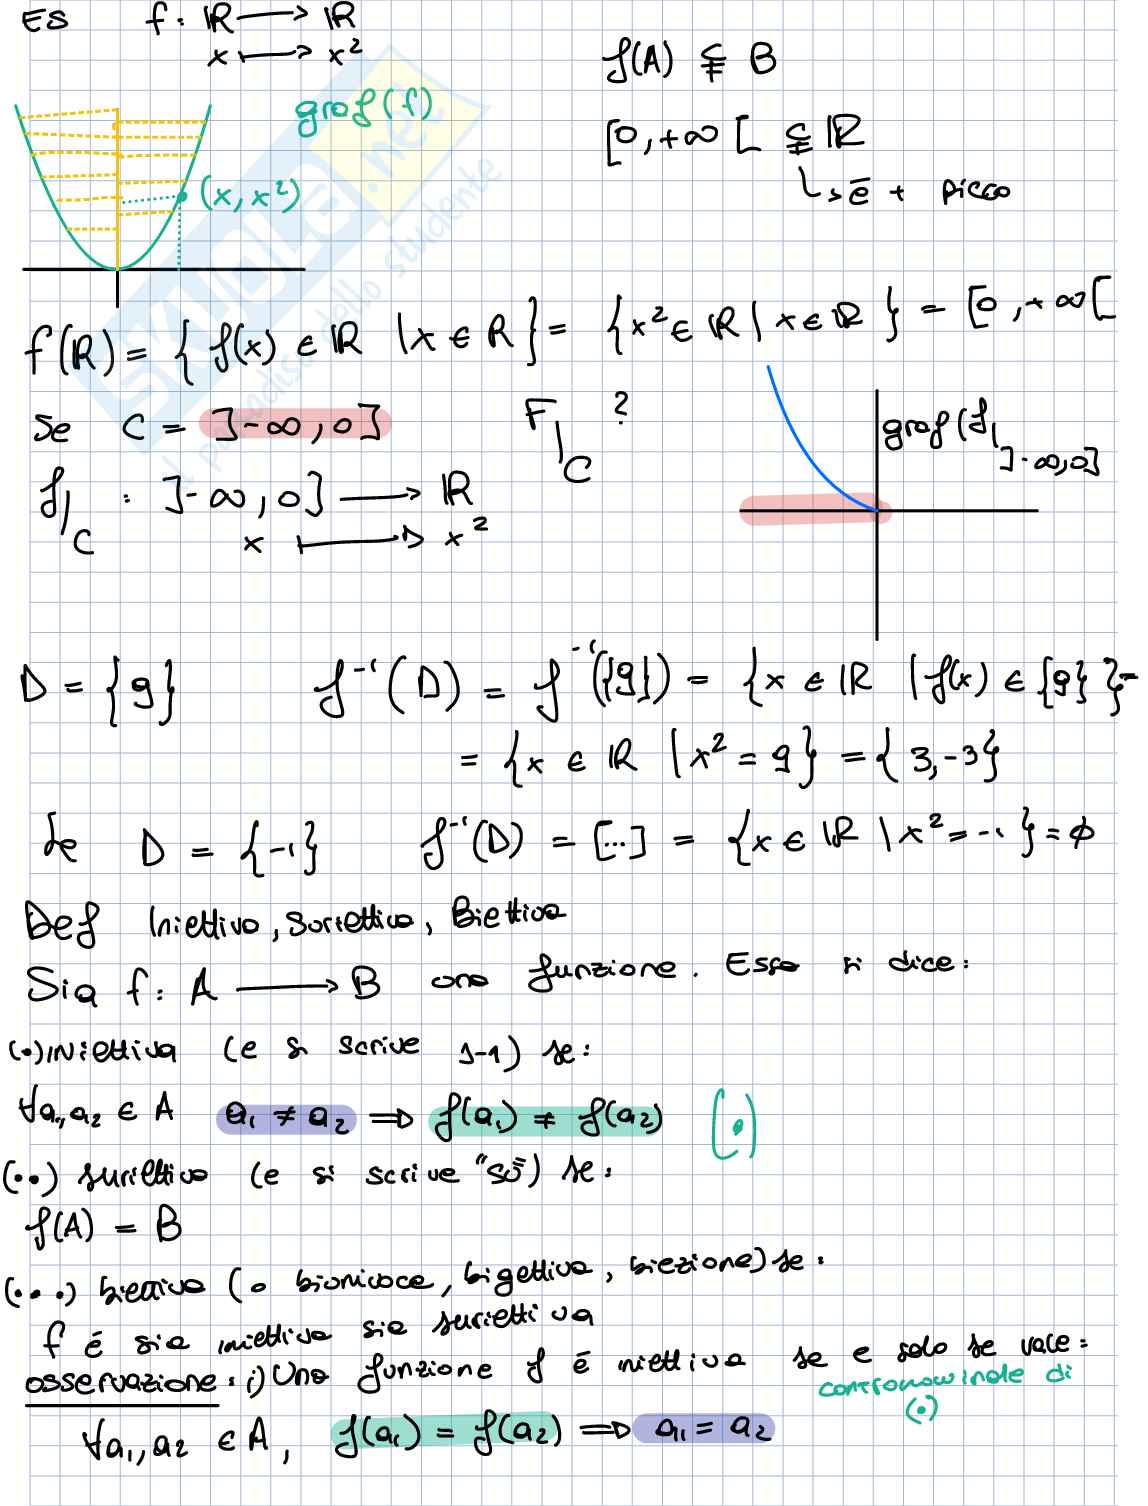 ES f: ℝ ⟶ ℝ
x ⟼ x²
f(A) ⊊ B
graf(f)
[0,+∞[ ⊊ ℝ
↳ è + picco
(x, x²)
SKUOLA.net
il paradiso dello studente
f(ℝ) = { f(x) ∈ ℝ | x ∈ ℝ } = { x² ∈ ℝ | x ∈ ℝ } = [0,+∞[
Se C = ]-∞,0] F|C ?
graf(f|]-∞,0]
f|C : ]-∞,0] ⟶ ℝ
x ⟼ x²
D = {9} f⁻¹(D) = f⁻¹({9}) = {x ∈ ℝ | f(x) ∈ {9}} =
= {x ∈ ℝ | x² = 9} = {3,-3}
Se D = {-1} f⁻¹(D) = [...] = {x ∈ ℝ | x² = -1} = ∅
Def Iniettiva, Suriettiva, Biettiva
Sia f: A ⟶ B una funzione. Essa si dice:
(•) iniettiva (e si scrive 1-1) se:
∀a₁,a₂ ∈ A a₁ ≠ a₂ ⟹ f(a₁) ≠ f(a₂) (•)
(••) suriettiva (e si scrive "su") se:
f(A) = B
(•••) biettiva (o biunivoca, bigettiva, biezione) se:
f è sia iniettiva sia suriettiva
osservazione: i) Una funzione f è iniettiva se e solo se vale:
contronominale di
(•)
∀a₁,a₂ ∈ A, f(a₁) = f(a₂) ⟹ a₁ = a₂